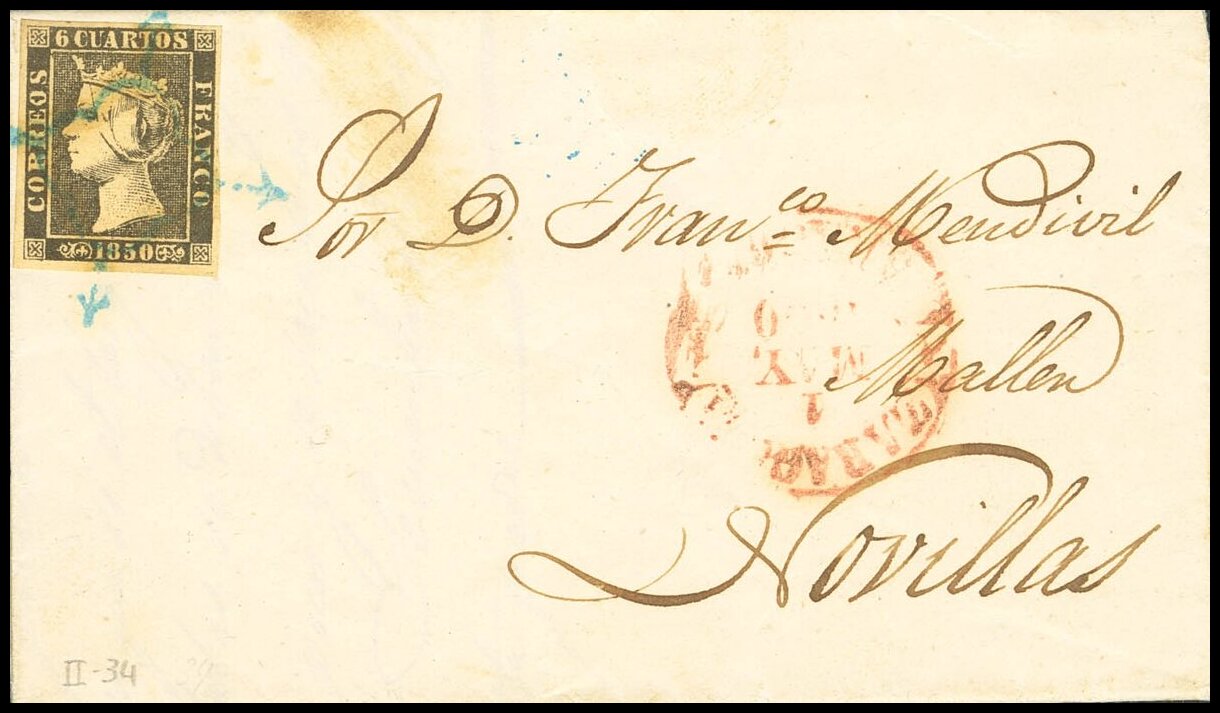 6 CUARTOS
CORREOS
FRANCO
1850
Por D. Fran.co Mendivil
Mallen
Novillas
1
MAY.
II-34